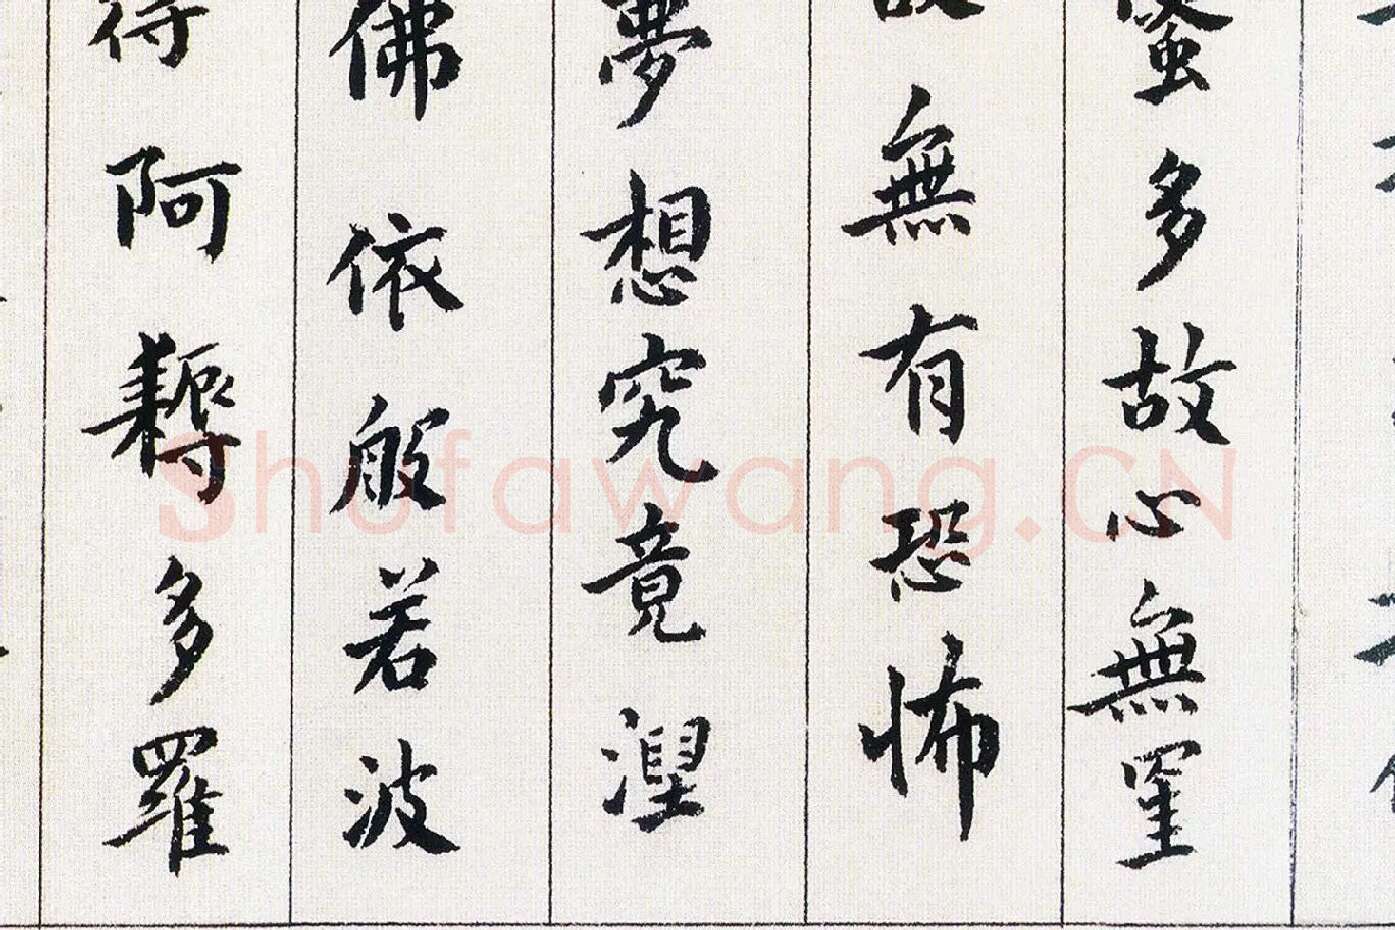 多故心無罣
無有恐怖
夢想究竟涅
佛依般若波
得阿耨多羅
Shufawang.CN